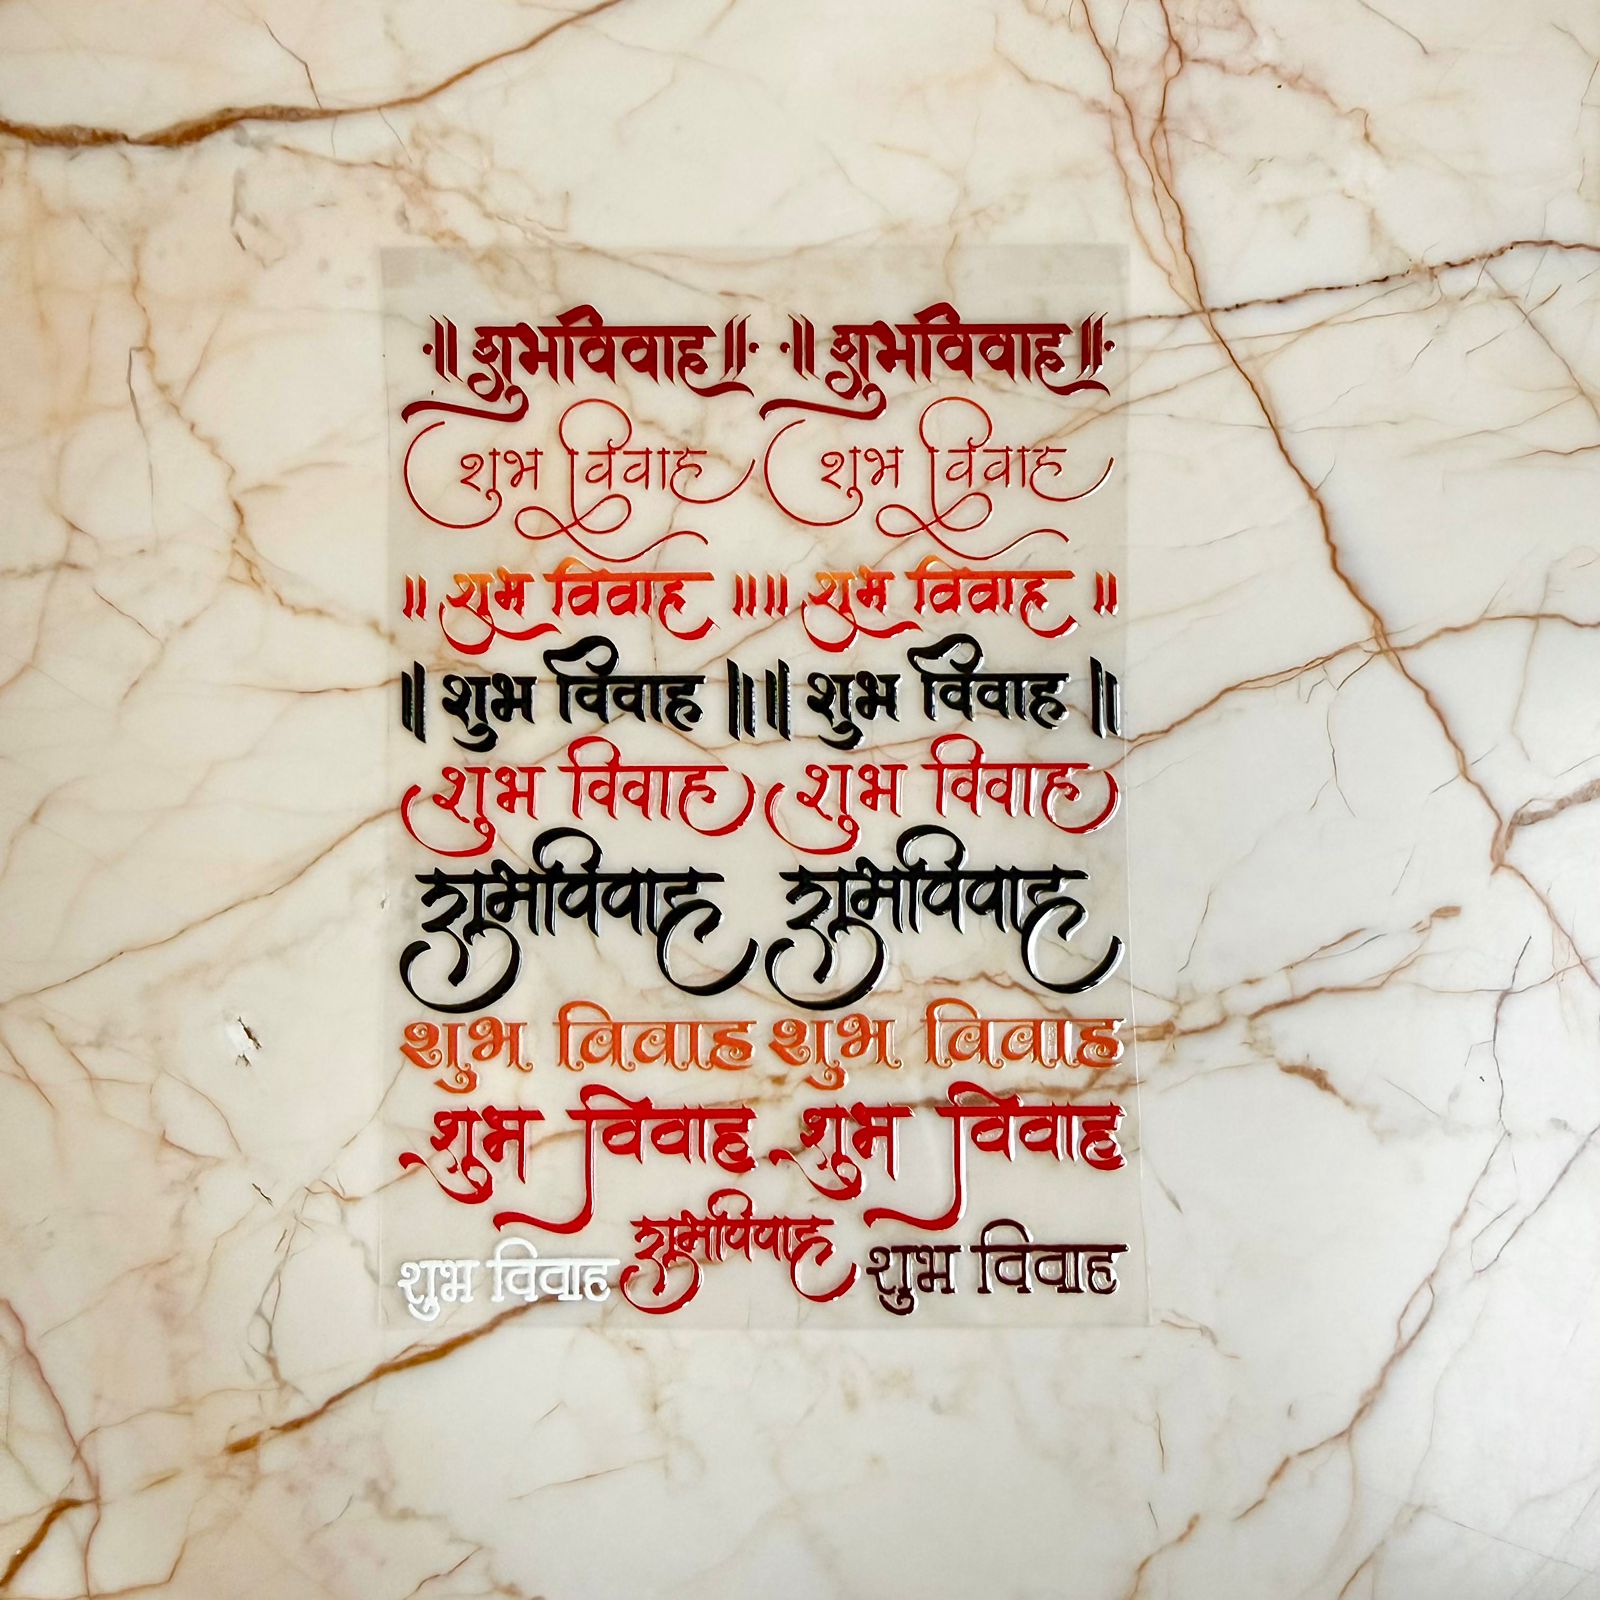 ॥ शुभविवाह ॥ ॥ शुभविवाह ॥
शुभ विवाह शुभ विवाह
॥ शुभ विवाह ॥ ॥ शुभ विवाह ॥
॥ शुभ विवाह ॥ ॥ शुभ विवाह ॥
शुभ विवाह शुभ विवाह
शुभविवाह शुभविवाह
शुभ विवाह शुभ विवाह
शुभ विवाह शुभ विवाह
शुभ विवाह शुभविवाह शुभ विवाह